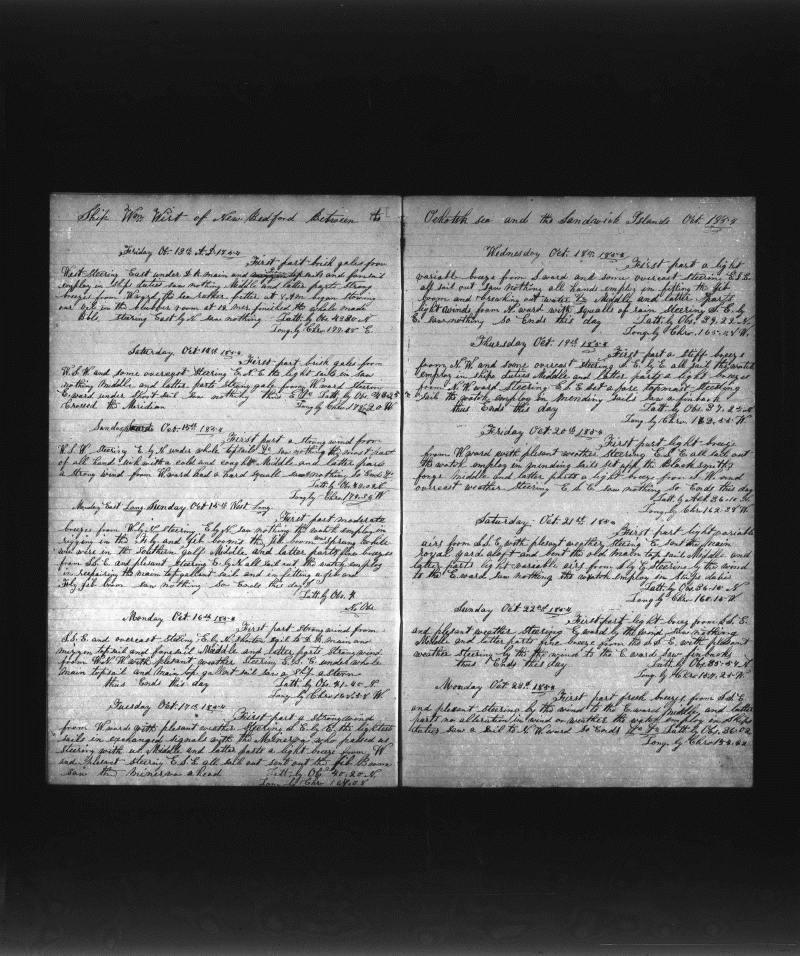 Ship Wm Wirt of New Bedford Between the
Friday Oct 13th A.D. 1854
First part brisk gales from
West Steering East under D.R. main and top sails and fore sail
employ in Ships duties saw nothing Middle and latter parts strong
breeze from Ward the sea rather better at 7 A.M. began stowing
our oil in the blubber room at 12 M finished the whole made
Bbls stearing East by N saw nothing Latt. by Obs 42.30 N
Long. by Chro 177.25 E
Saturday Oct 14th 1854
First part brisk gales from
W.S.W and some overcast Steering E.N.E the light sails in saw
nothing Middle and latter parts strong gale from Ward Steering
Eward under Short sail saw nothing this E Ds Latt by Obs
Crossed the Meridian Long by Chro W
Sunday Oct 15th 1854
First part a strong wind from
W.S.W. steering E by N under whole topsails Ds saw nothing the most part
of all hands sick with a cold and cough Middle and latter parts
a strong wind from Ward had a hard squall saw nothing So Ends Ds
Latt by Obs
Long by Chro W
Monday East Long Sunday Oct 15th West Long
First part moderate
breeze from W by N steering E by N saw nothing the watch employ in
rigging in the Fly and Jib booms the jib boom was Sprung while
we were in the Southern gulf Middle and latter parts fine breeze
from S.S.E and plesant Steering E by N all sail out the watch employ
in repairing the main top gallant sail and in fitting a jib and
Fly jib boom saw nothing So Ends this day
Latt. by Obs.
No Obs
Monday Oct 16th 1854
First part strong wind from
S.S.E and overcast Steering E by N Shorten Sail to D.R. main and
mizzen topsail and foresail Middle and latter parts strong wind
from W.N.W with plesant weather Steering E.S.E under whole
Main topsail and Main top gallant sail saw a Ship a stern
thus Ends this day Latt. by Obs. 41.40 N
Long. by Chro W
Tuesday Oct 17th 1854
First part a strong wind
from Wward with plesant weather Steering S.E. by E. the lighter
sails in exchanged signals with the Minerva who passed us
steering with us Middle and latter parts a light breeze from W
and Plesant steering E.S.E all sail out sent out the jib Boom
saw the Minerva a head Latt. by Obs 40.20 N
Long by Chr
Ochotsk sea and the Sandwich Islands Oct. 1854
Wednesday Oct. 18th 1854
First part a light
variable breeze from Sward and some overcast steering E.S.E
all sail out saw nothing all hands employ in fitting the jib
boom and breaking out water Ds Middle and latter parts
light winds from Nward with squalls of rain Steering S.E. by
E. saw nothing So Ends this day Latt. by Obs. 39.22 N.
Long. by Chro. W.
Thursday Oct. 19th 1854
First part a stiff breeze
from N.W. and some overcast steering S.E. by E all sail the watch
employ in ships duties Middle and latter parts a light breeze
from N.Wward Steering E.S.E set a fore topmast Studding
sail the watch employ in mending sails saw a finback
thus Ends this day Latt. by Obs 37. N
Long. by Chro. W
Friday Oct 20th 1854
First part light breeze
from Wward with plesant weather Steering E.S.E all sail out
the watch employ in mending sails set up the Blacksmiths
forge Middle and latter parts a light breeze from Wward and
overcast weather Steering E.S.E saw nothing So Ends this day
Latt. by Obs 36.10 N
Long by Chro 162.28 W
Saturday Oct. 21st 1854
First part light variable
airs from S.S.E. with plesant weather Steering E. sent the main
royal yard aloft and bent the old main top sail Middle and
latter parts light variable airs from S by E Steering by the wind
to the Eward saw nothing the watch employ in Ships duties
Latt. by Obs 36.10 N
Long by Chro. 160.15 W
Sunday Oct 22nd 1854
First part light breeze from S.S.E.
and plesant weather Steering Eward by the wind saw nothing
Middle and latter parts fine breeze from the S.E. with plesant
weather steering by the wind to the Eward saw finbacks
thus Ends this day Latt. by Obs N
Long. by Chro. W
Monday Oct 23rd 1854
First part fresh breeze from S.S.E
and plesant steering by the wind to the Eward Middle and latter
part no alteration in wind or weather the watch employ in ships
duties saw a sail to N.Wward So Ends Ds Latt. by Obs. 36.02
Long. by Chro